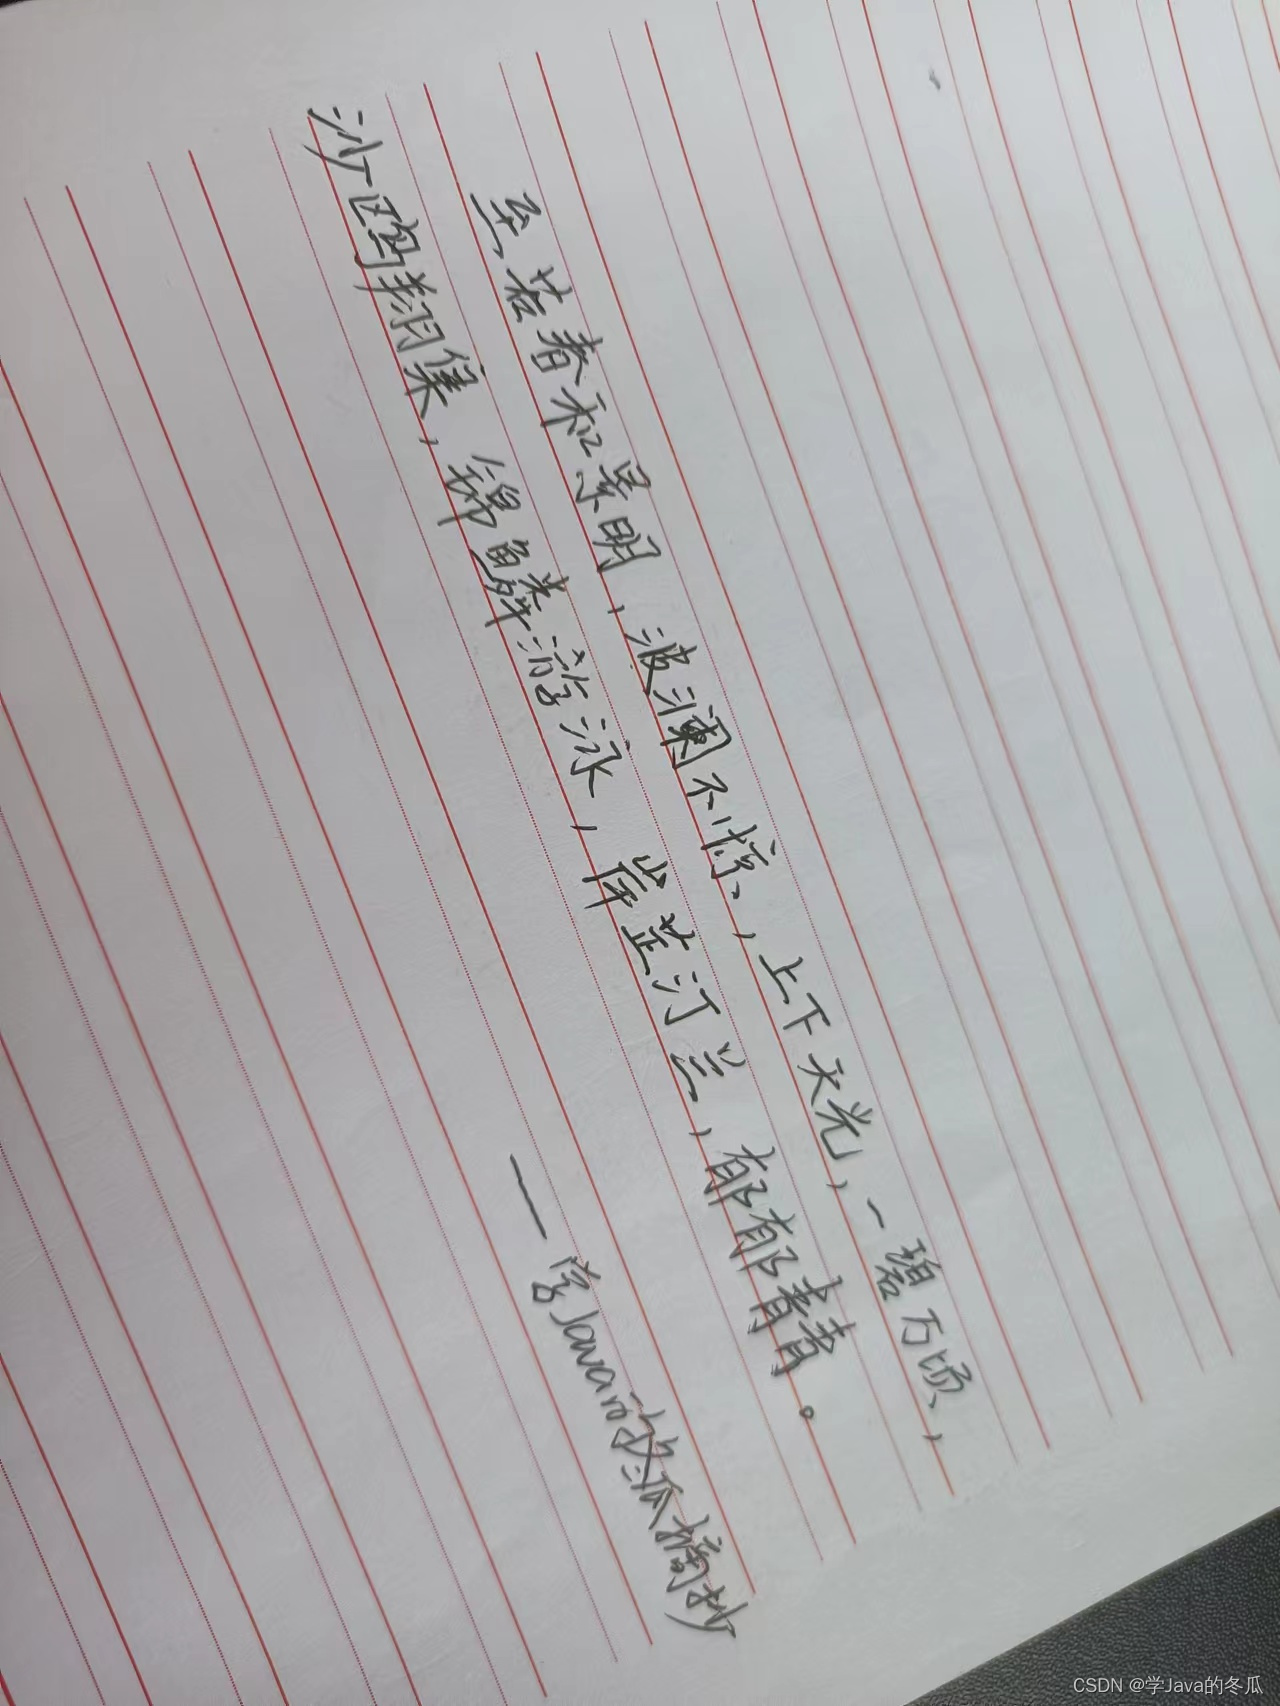 至若春和景明，波澜不惊，上下天光，一碧万顷，
沙鸥翔集，锦鳞游泳，岸芷汀兰，郁郁青青。
——学Java的冬瓜摘抄
CSDN @学Java的冬瓜